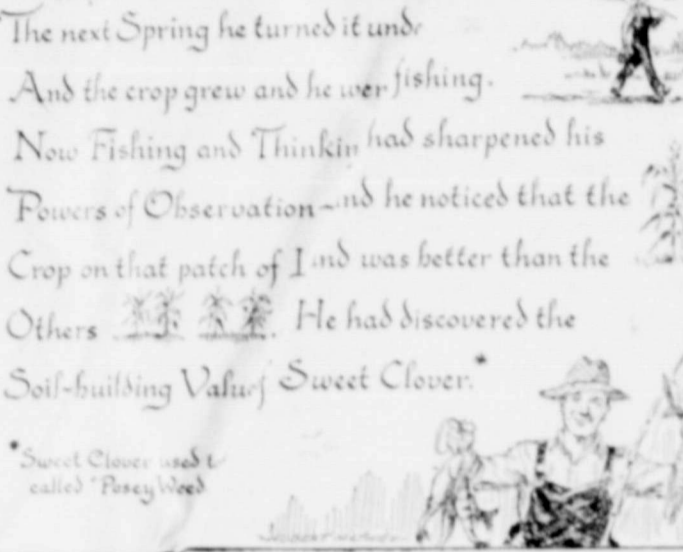 The next Spring he turned it unde
And the crop grew and he wen fishing.
Now Fishing and Thinkin had sharpened his
Powers of Observation - and he noticed that the
Crop on that patch of Land was better than the
Others He had discovered the
Soil-building Value of Sweet Clover.*
*Sweet Clover used t
called "Posey Weed